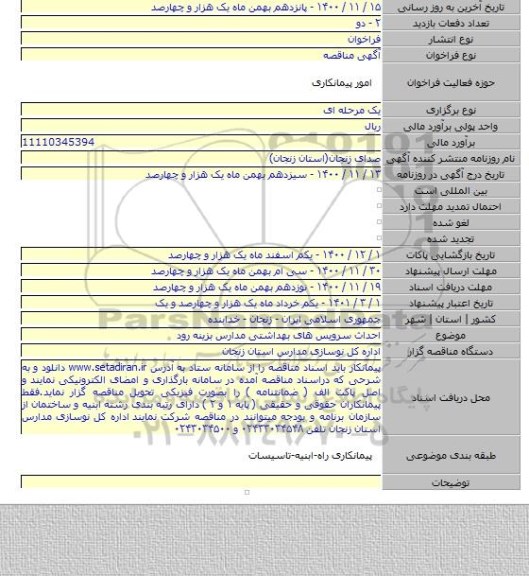 تاریخ آخرین به روز رسانی ۱۵ / ۱۱ / ۱۴۰۰ - پانزدهم بهمن ماه یک هزار و چهارصد
تعداد دفعات بازدید ۲ - دو
نوع انتشار فراخوان
نوع فراخوان آگهی مناقصه
حوزه فعالیت فراخوان امور پیمانکاری
نوع برگزاری یک مرحله ای
واحد پولی برآورد مالی ریال
برآورد مالی 11110345394
نام روزنامه منتشر کننده آگهی صدای زنجان(استان زنجان)
تاریخ درج آگهی در روزنامه ۱۳ / ۱۱ / ۱۴۰۰ - سیزدهم بهمن ماه یک هزار و چهارصد
بین المللی است
احتمال تمدید مهلت دارد
لغو شده
تجدید شده
تاریخ بازگشایی پاکات ۱ / ۱۲ / ۱۴۰۰ - یکم اسفند ماه یک هزار و چهارصد
مهلت ارسال پیشنهاد ۳۰ / ۱۱ / ۱۴۰۰ - سی ام بهمن ماه یک هزار و چهارصد
مهلت دریافت اسناد ۱۹ / ۱۱ / ۱۴۰۰ - نوزدهم بهمن ماه یک هزار و چهارصد
تاریخ اعتبار پیشنهاد ۱ / ۳ / ۱۴۰۱ - یکم خرداد ماه یک هزار و چهارصد و یک
کشور | استان | شهر جمهوری اسلامی ایران - زنجان - خدابنده
موضوع احداث سرویس های بهداشتی مدارس بزینه رود
دستگاه مناقصه گزار اداره کل نوسازی مدارس استان زنجان
محل دریافت اسناد پیمانکار باید اسناد مناقصه را از سامانه ستاد به آدرس www.setadiran.ir دانلود و به
شرحی که دراسناد مناقصه آمده در سامانه بارگذاری و امضای الکترونیکی نمایند و
اصل پاکت الف ( ضمانتنامه ) را بصورت فیزیکی تحویل مناقصه گزار نماید.فقط
پیمانکاران حقوقی و حقیقی ( پایه ۱ و ۲ ) دارای رتبه بندی رشته ابنیه و ساختمان از
سازمان برنامه و بودجه میتوانند در مناقصه شرکت نمایند اداره کل نوسازی مدارس
استان زنجان تلفن ۰۲۴۳۳۰۳۴۵۴۸ و ۰۲۴۳۰۳۴۵۰۰
طبقه بندی موضوعی پیمانکاری راه-ابنیه-تاسیسات
توضیحات
ParsNamadData